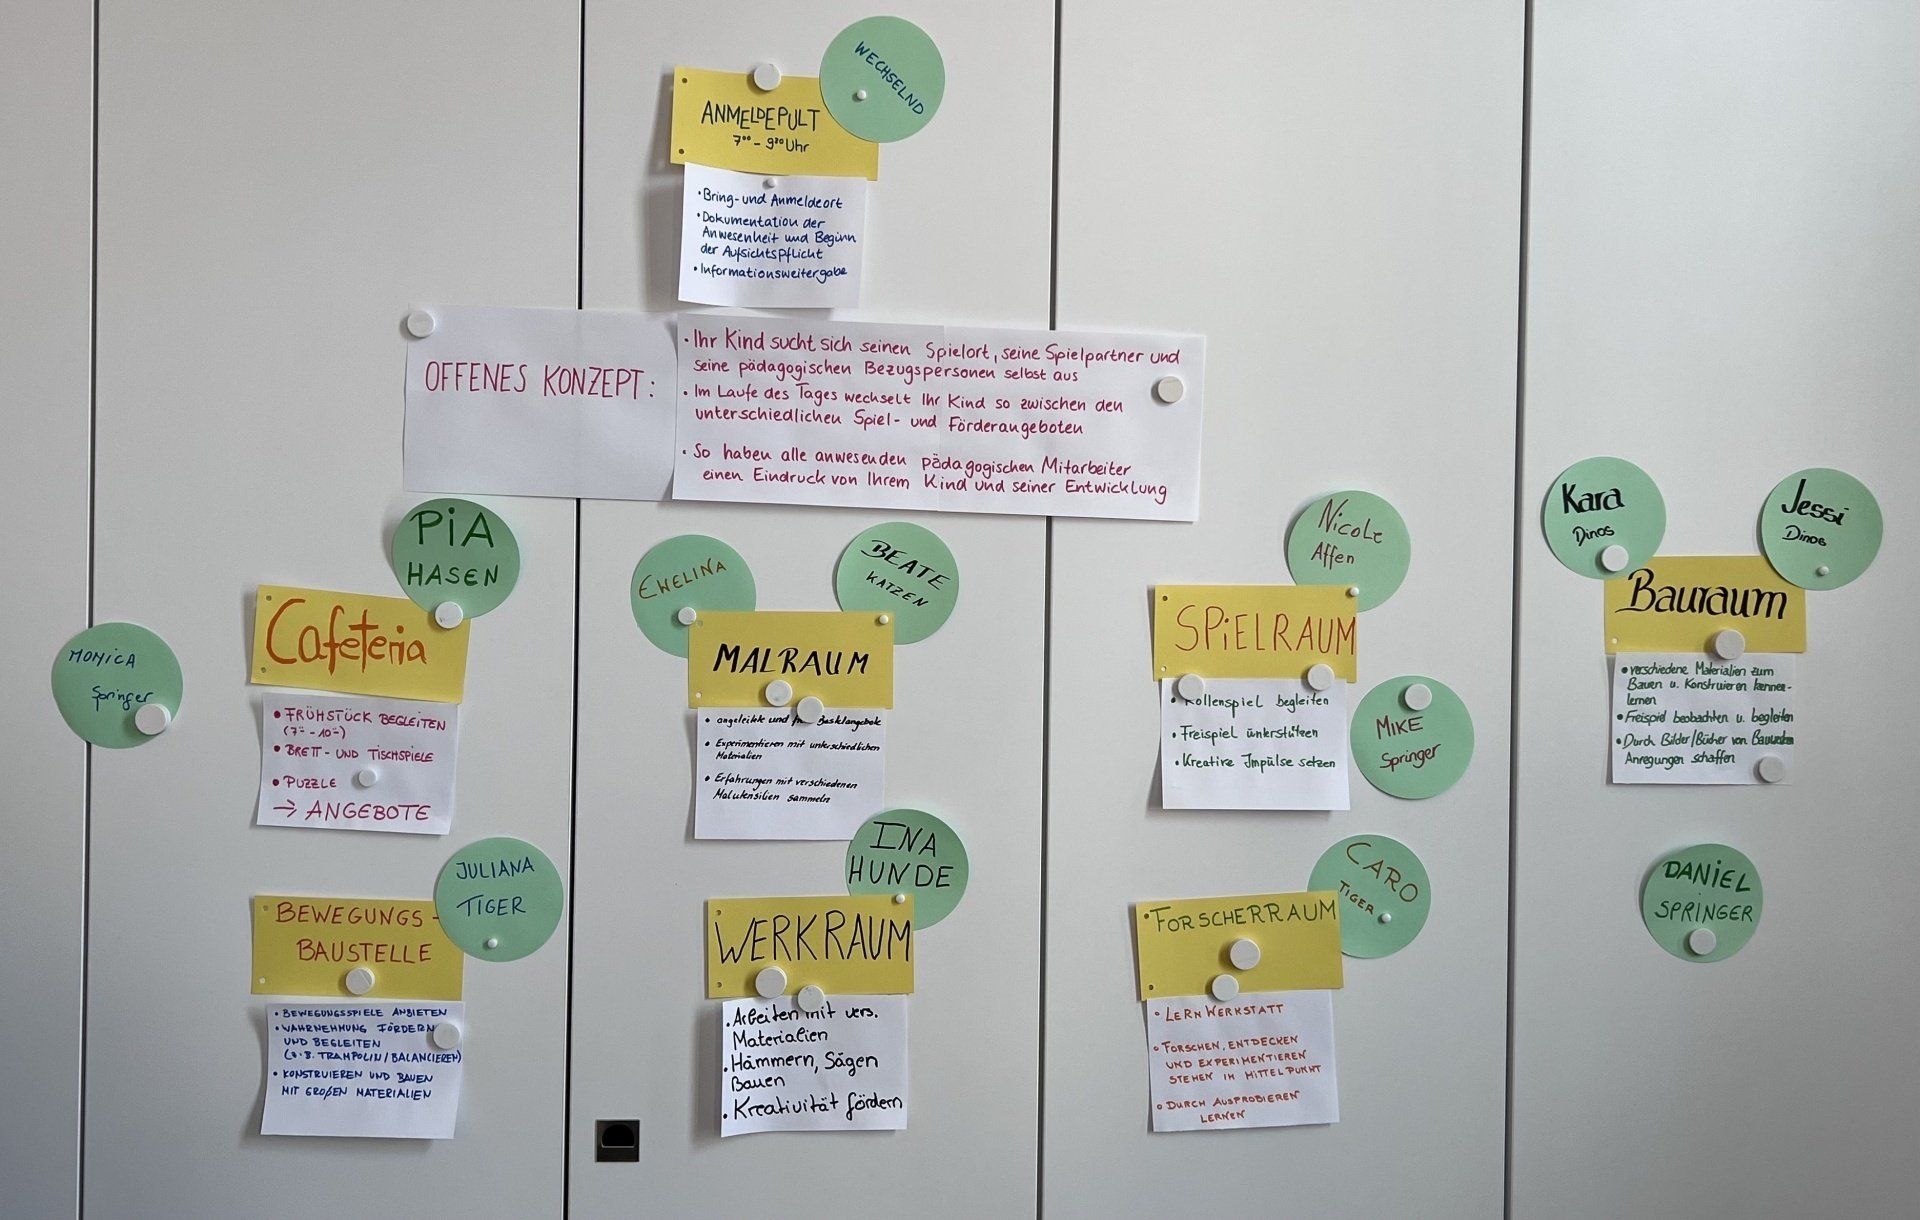 WECHSELND
ANMELDEPULT
7⁰⁰ - 9³⁰ Uhr
• Bring- und Anmeldeort
• Dokumentation der
Anwesenheit und Beginn
der Aufsichtspflicht
• Informationsweitergabe
OFFENES KONZEPT:
• Ihr Kind sucht sich seinen Spielort, seine Spielpartner und
seine pädagogischen Bezugspersonen selbst aus
• Im Laufe des Tages wechselt Ihr Kind so zwischen den
unterschiedlichen Spiel- und Förderangeboten
• So haben alle anwesenden pädagogischen Mitarbeiter
einen Eindruck von Ihrem Kind und seiner Entwicklung
MONICA
Springer
PiA
HASEN
Cafeteria
• FRÜHSTÜCK BEGLEITEN
• BRETT- UND TISCHSPIELE
• PUZZLE
→ ANGEBOTE
EWELINA
BEATE
KATZEN
MALRAUM
• angeleitete und Bastelangebote
• Experimentieren mit unterschiedlichen
Materialien
• Erfahrungen mit verschiedenen
Malutensilien sammeln
Nicole
Affen
SPiELRAUM
• Rollenspiel begleiten
• Freispiel ünterstützen
• Kreative Impülse setzen
MIKE
Springer
Kara
Dinos
Jessi
Dinos
Bauraum
• verschiedene Materialien zum
Bauen u. Konstruieren kennen-
lernen
• Freispiel beobachten u. begleiten
• Durch Bilder/Bücher von
Anregungen schaffen
JULIANA
TIGER
BEWEGUNGS-
BAUSTELLE
• BEWEGUNGSSPIELE ANBIETEN
• WAHRNEHMUNG FÖRDERN
UND BEGLEITEN
(Z.B. TRAMPOLIN/BALANCIEREN)
• KONSTRUIEREN UND BAUEN
MIT GROßEN MATERIALIEN
INA
HUNDE
WERKRAUM
• Arbeiten mit vers.
Materialien
• Hämmern, Sägen
Bauen
• Kreativität fördern
CARO
TIGER
FORSCHERRAUM
• LERNWERKSTATT
• FORSCHEN, ENTDECKEN
UND EXPERIMENTIEREN
STEHEN IM MITTELPUNKT
• DURCH AUSPROBIEREN
LERNEN
DANIEL
SPRINGER